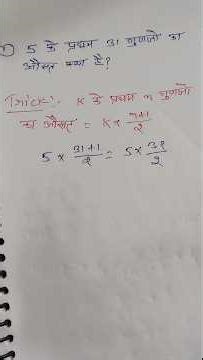 1) 5 के प्रथम 31 गुणजो का
औसत क्या है?
Trick:- K के प्रथम n गुणजो
का औसत = K × n+1/2
5 × 31+1/2 = 5 × 32/2